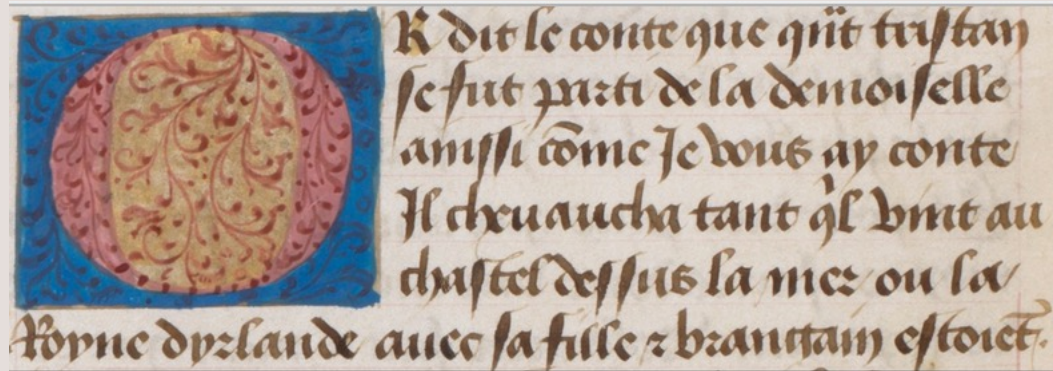 OR dit le conte que qñt tristan
se fut parti de la demoiselle
ainssi cõme Je vous ay conte
Il cheuaucha tant q̃l vint au
chastel dessus la mer ou la
Royne dyrlande auec sa fille ⁊ brangain estoiẽt.